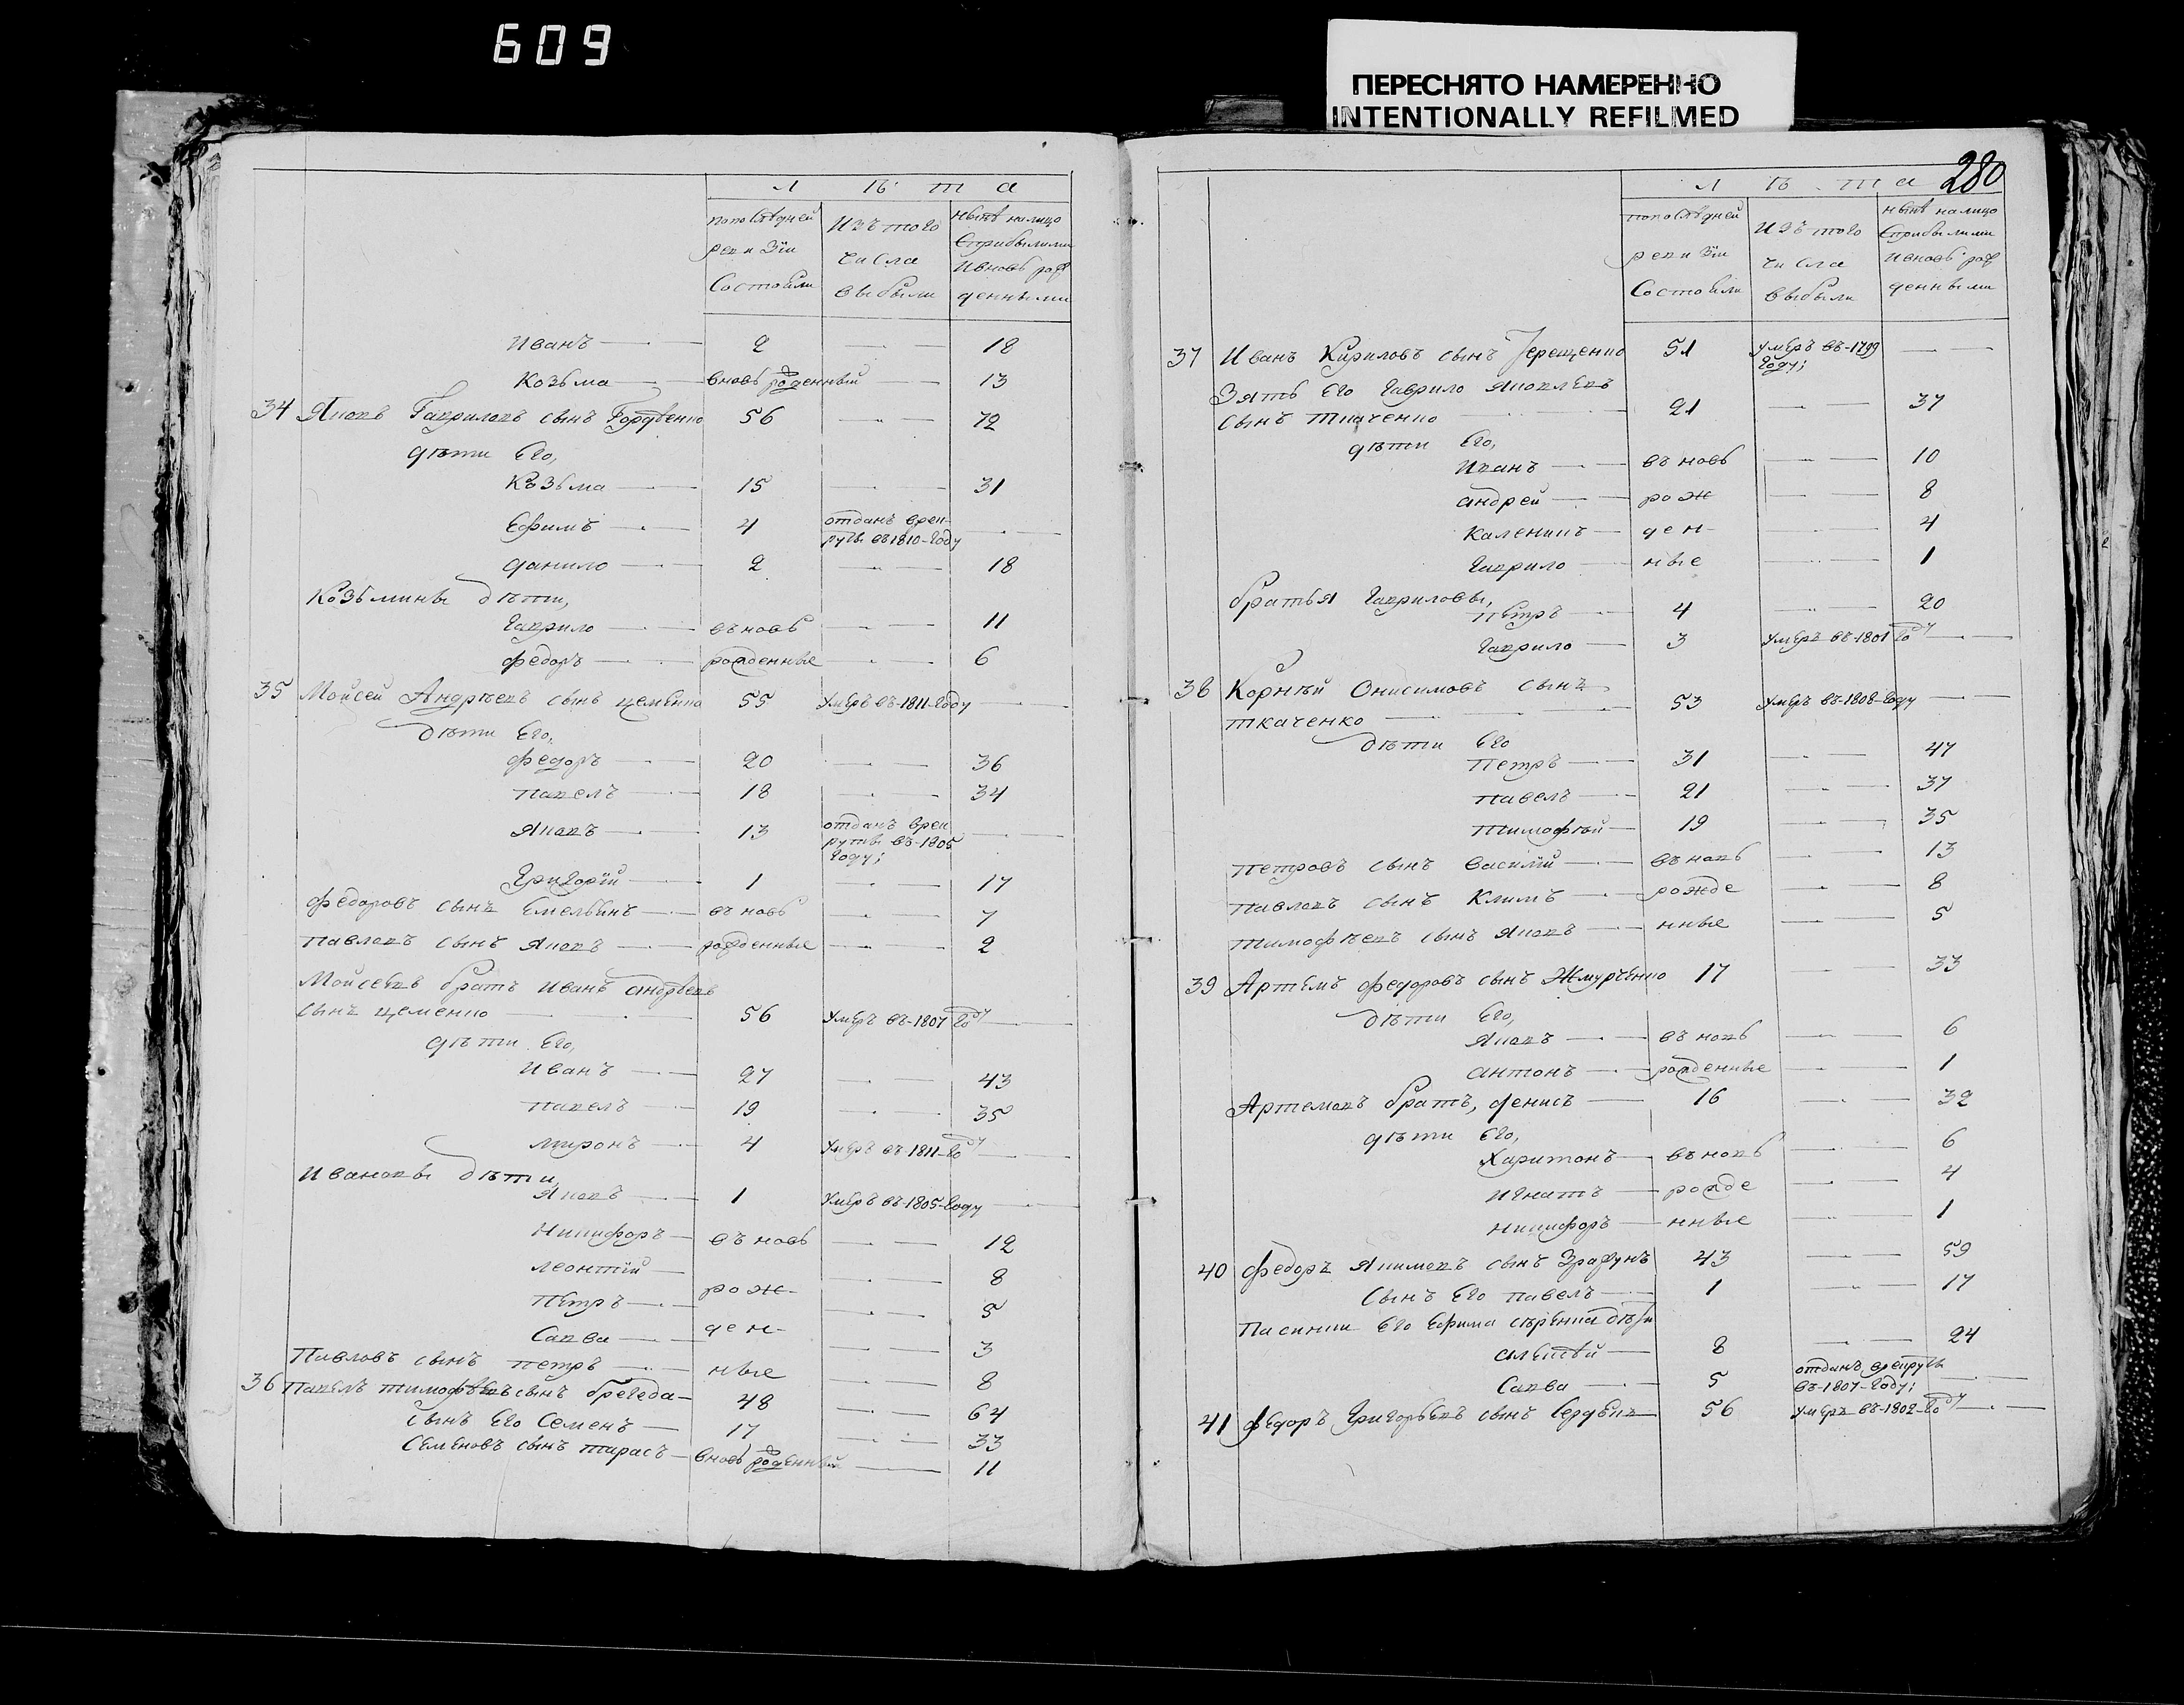 609
ПЕРЕСНЯТО НАМЕРЕННО
INTENTIONALLY REFILMED
Л ѣ т а
попослѣдней ревизіи состояли
Изъ того числа выбыли
нынѣ на лицо
Сприбылыми
и вновь рож
денными
Иванъ 2 18
Козьма вновь рожденный 13
34 Яковъ Гавриловъ сынъ Гордѣенко 56 72
дѣти Его,
Козьма 15 31
Ефимъ 4 отданъ врек-
руты въ 1810-Году
данило 2 18
Козьмины дѣти,
Гаврило въновь 11
федоръ рожденные 6
35 Мойсей Андрѣевъ сынъ цеменко 55 Умеръ въ-1811-Году
дѣти Его,
федоръ 20 36
павелъ 18 34
Яковъ 13 отданъ врек
руты въ-1805
Году;
Григорій 1 17
федоровъ сынъ Емельянъ въновь 7
павловъ сынъ Яковъ рожденные 2
Мойсеевъ братъ Иванъ андрѣевъ
сынъ цеменко 56 Умеръ въ-1807 Году
дѣти Его,
Иванъ 27 43
павелъ 19 35
миронъ 4 Умеръ въ-1811-Году
Ивановы дѣти,
Яковъ 1 Умеръ въ-1805-Году
Никифоръ въновь 12
леонтій 8
рож-
Петръ 5
ден-
Савва 3
Павловъ сынъ петръ ные 8
36 Павелъ тимофѣевъ сынъ 48 64
сынъ Его Семенъ 17 33
Семеновъ сынъ тарасъ вновь рожденный 11
280
Л ѣ т а
попослѣдней ревизіи состояли
Изъ того числа выбыли
нынѣ на лицо
Сприбылыми
и вновь рож
денными
37 Иванъ Кириловъ сынъ Терещенко 51 умеръ въ-1799
Году;
Зять Его Гаврило Яковлевъ
сынъ ткаченко 21 37
дѣти Его,
Иванъ въновь 10
андрей рож 8
Каленикъ ден- 4
Гаврило ные 1
братья Гавриловы,
петръ 4 20
Гаврило 3 Умеръ въ-1801 Году
38 Корнѣй Онисимовъ сынъ
ткаченко 53 Умеръ въ-1808-Году
дѣти Его
Петръ 31 47
павелъ 21 37
тимофѣй 19 35
петровъ сынъ василій въновь 13
павловъ сынъ Климъ рожде 8
тимофѣевъ сынъ Яковъ нные 5
39 Артемъ федоровъ сынъ Жмурченко 17 33
дѣти Его,
Яковъ въновь 6
антонъ рожденные 1
Артемовъ братъ, денисъ 16 32
дѣти Его,
Харитонъ въновь 6
игнатъ рожде 4
никифоръ нные 1
40 федоръ Якимовъ сынъ 43 59
сынъ Его павелъ 1 17
Пасинки Его Ефима дѣти
алексѣй 8 24
Савва 5 отданъ врекруты
въ-1807-Году;
41 федоръ Григорьевъ сынъ Сердюкъ 56 умеръ въ-1802-Году